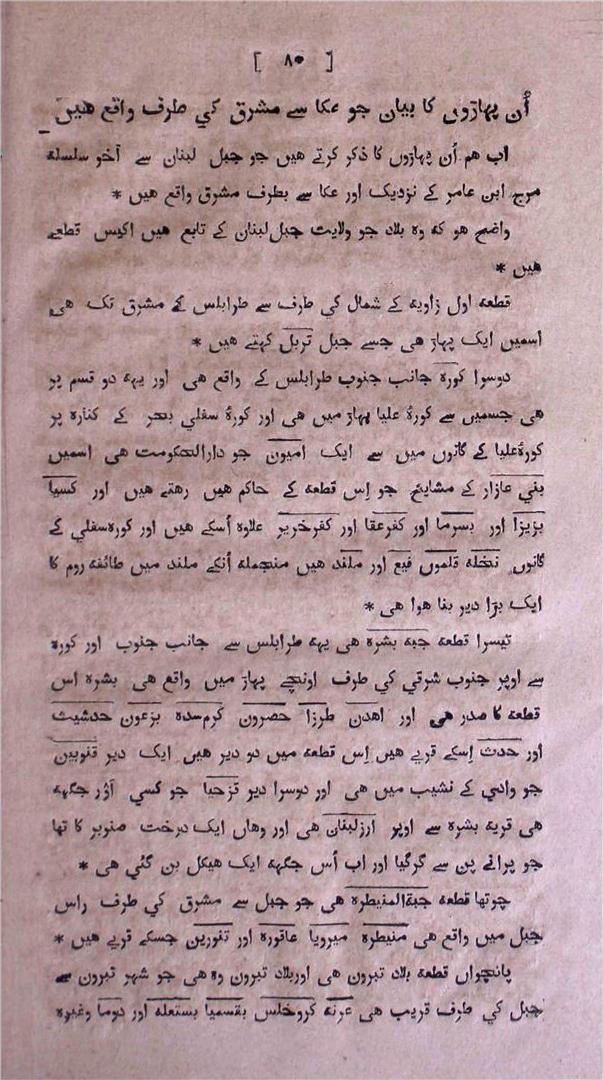 [ ٨٠ ]
اُن پہاڑوں کا بیان جو عکا سے مشرق کي طرف واقع هیں
اب هم اُن پہاڑوں کا ذکر کرتے هیں جو جبل لبنان سے آخر سلسله
مرج ابن عامر کے نزدیک اور عکا سے بطرف مشرق واقع هیں *
واضح هو که وه بلاد جو ولایت جبل لبنان کے تابع هیں اکیس قطعے
هیں *
قطعه اول زاویه کے شمال کي طرف سے طرابلس کے مشرق تک هی
اسمیں ایک پہاڑ هی جسے جبل تربل کہتے هیں *
دوسرا کوره جانب جنوب طرابلس کے واقع هی اور یہه دو قسم پر
هی جسمیں سے کورهٔ علیا پہاڑ میں هی اور کورهٔ سفلي بحر کے کناره پر
کورهٔ علیا کے گانوں میں سے ایک امیون جو دارالحکومت هی اسمیں
بني عازار کے مشایخ جو اِس قطعه کے حاکم هیں رهتے هیں اور کسبا
بزیزا اور بسرما اور کفرعقا اور کفرخریر علاوه اُسکے هیں اور کوره سفلي کے
گانوں نخله قلموں فیع اور ملند هیں منجمله اُنکے ملند میں طائفه روم کا
ایک بڑا دیر بنا هوا هی *
تیسرا قطعه جبه بشره هی یہه طرابلس سے جانب جنوب اور کوره
سے اوپر جنوب شرقي کي طرف اونچے پہاڑ میں واقع هی بشره اس
قطعه کا صدر هی اور اهدن طرزا حصرون کرم‌سده بزعون حدشیث
اور حدث اِسکے قریے هیں اِس قطعه میں دو دیر هیں ایک دیر قنوبین
جو وادي کے نشیب میں هی اور دوسرا دیر قزحیا جو کسي اَوْر جگہه
هی قریه بشره سے اوپر ارزلبنان هی اور وهاں ایک درخت صنوبر کا تها
جو پرانے پن سے گرگیا اور اب اُس جگہه ایک هیکل بن گئي هی *
چوتها قطعه جبةالمنیطره هی جو جبل سے مشرق کي طرف راس
جبل میں واقع هی منیطره میروبا عاقوره اور تنورین جسکے قریے هیں *
پانچواں قطعه بلاد تبرون هی اوربلاد تبرون وه هی جو شہر تبرون سے
جبل کي طرف قریب هی عرنه کروخلس بقسمیا بستعله اور دوما وغیره